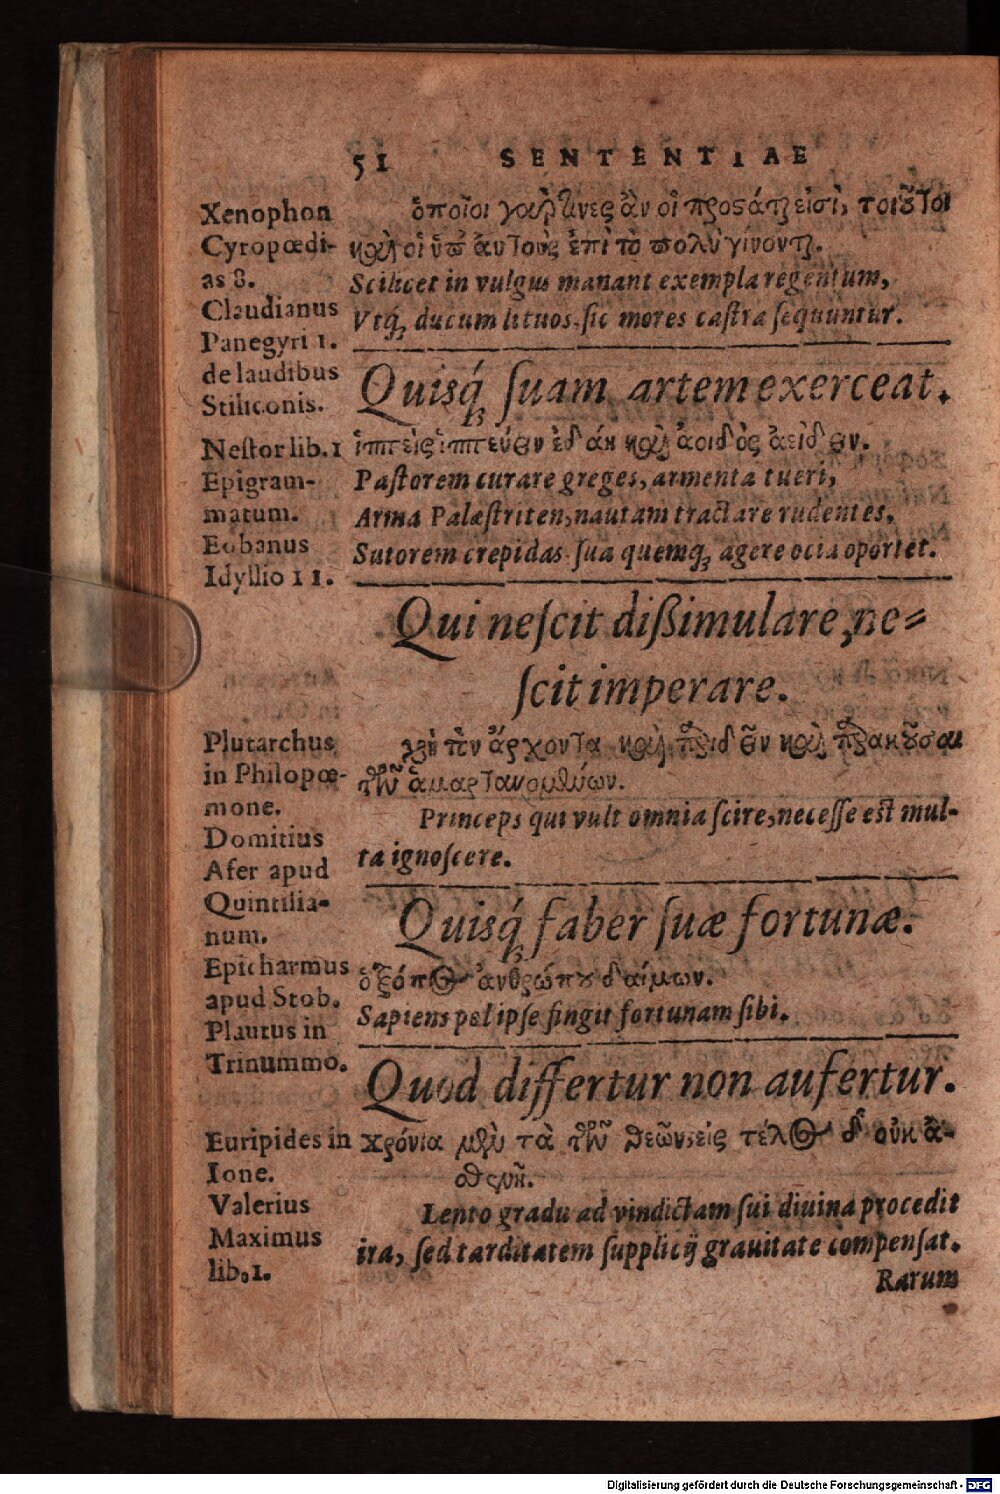 51 SENTENTIAE
Xenophon
Cyropœdi-
as 8.
Claudianus
Panegyri 1.
de laudibus
Stiliconis.
ὁποῖοι γὰρ τινες ἂν οἱ προστάται εἰσὶ, τοιοῦτοι
καὶ οἱ ὑπ' αὐτοὺς ἐπὶ τὸ πολὺ γίνονται.
Scilicet in vulgus manant exempla regentum,
Vtq́ꝫ ducum lituos, sic mores castra sequuntur.
Quisq́ꝫ suam artem exerceat.
Nestor lib. 1
Epigram-
matum.
Eobanus
Idyllio 11.
ἱππεῖς ἱππεύειν ἐδάη καὶ ἀοιδὸς ἀείδειν.
Pastorem curare greges, armenta tueri,
Arma Palæstriten, nautam tractare rudentes,
Sutorem crepidas sua quemqꝫ agere ocia oportet.
Qui nescit dißimulare, ne=
scit imperare.
Plutarchus
in Philopœ-
mone.
Domitius
Afer apud
Quintilia-
num.
τὸν ἄρχοντα καὶ παριδεῖν καὶ παρακοῦσαι
τῶν ἁμαρτανομένων.
Princeps qui vult omnia scire, necesse est mul-
ta ignoscere.
Quisq́ꝫ faber suæ fortunæ.
Epicharmus
apud Stob.
Plautus in
Trinummo.
ὁ τρόπος ἀνθρώπου δαίμων.
Sapiens pol ipse fingit fortunam sibi.
Quod differtur non aufertur.
Euripides in
Ione.
Valerius
Maximus
lib. 1.
χρόνια μὲν τὰ τῶν θεῶν, εἰς τέλος δ' οὐκ ἀ-
σθενῆ.
Lento gradu ad vindictam sui diuina procedit
ira, sed tarditatem supplicij grauitate compensat.
Rarum
Digitalisierung gefördert durch die Deutsche Forschungsgemeinschaft - DFG